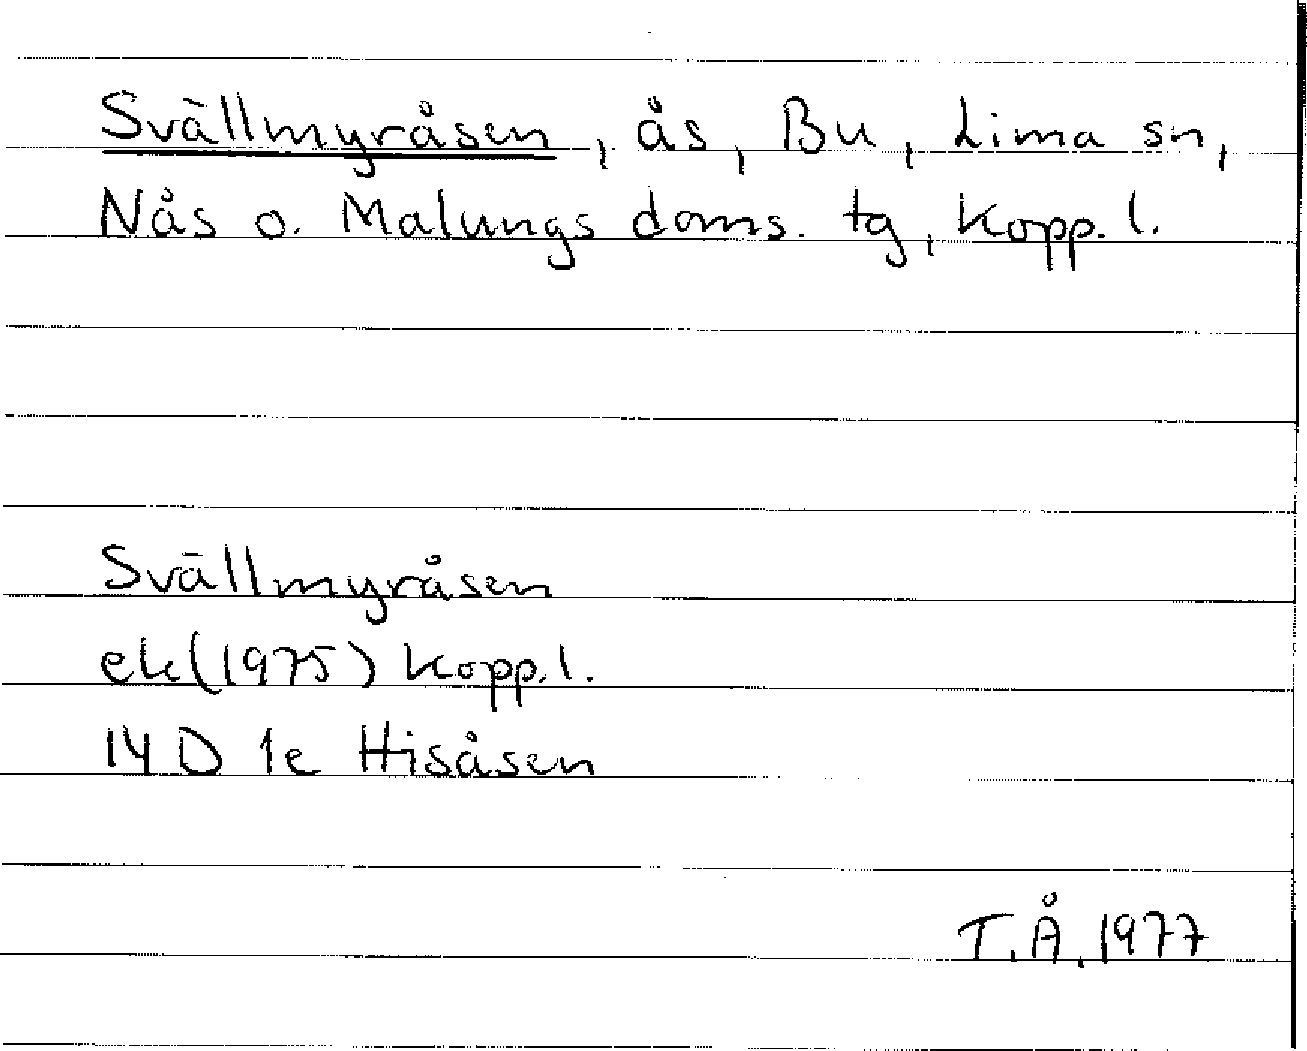 Svällmyråsen, ås, Bu, Lima sn,
Nås o. Malungs doms. tg, Kopp. l.
Svällmyråsen
ek(1975) Kopp. l.
14 D 1e Hisåsen
T.Å. 1977